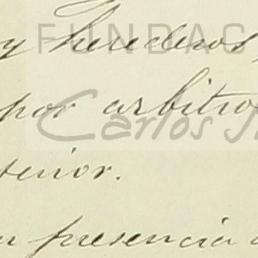 FUNDAC
y herederos,
por arbitro
Carlos
terior.
presencia